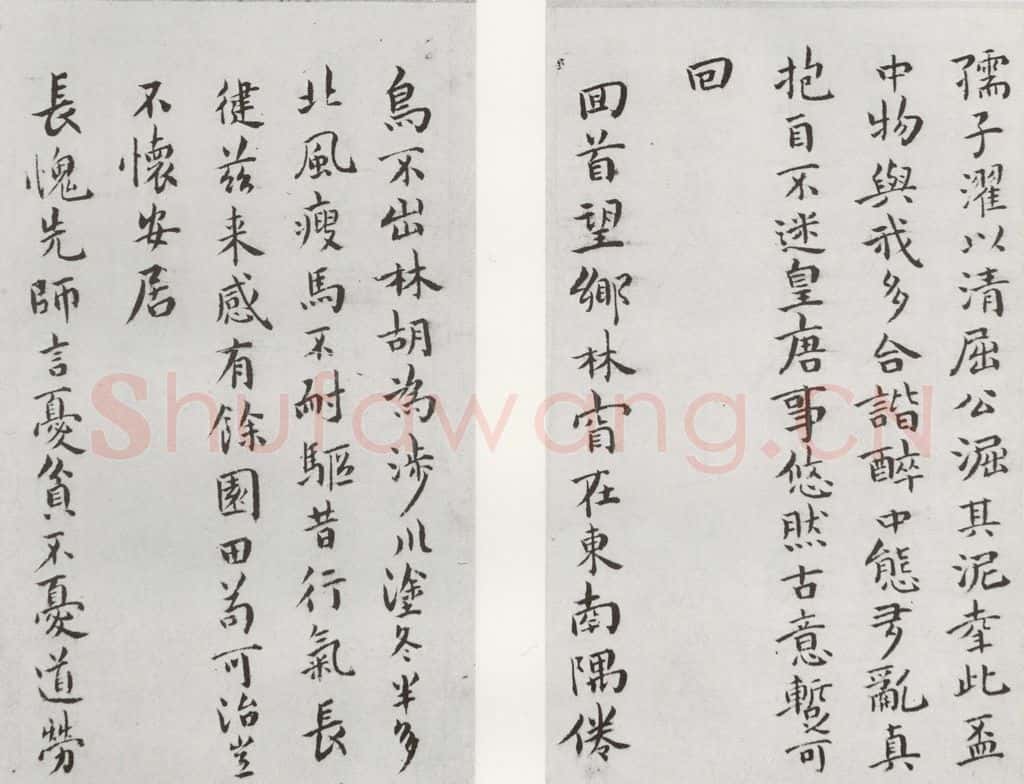 孺子濯以清屈公淈其泥幸此盃
中物與我多合諧醉中態多亂真
抱自不迷皇唐事悠然古意暫可
回
回首望鄉林甯在東南隅倦
鳥不出林胡為涉川塗冬半多
北風瘦馬不耐驅昔行氣長
健茲来感有餘園田苟可治豈
不懷安居
長愧先師言憂貧不憂道勞
Shufawang.CN